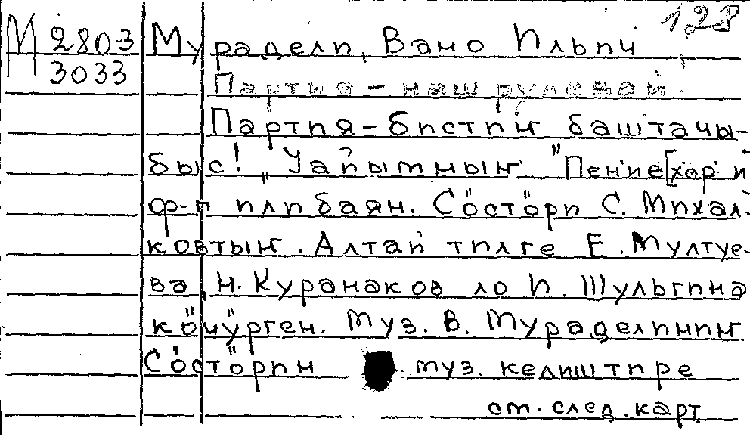 128
М 2803 Мурадели, Вано Ильич
3033
Партия – наш рулевой.
Партия – бистиҥ баштачы-
быс! „Уайымныҥ" Пение [хор и
ф-п или баян. Сӧстӧри С. Михал-
ковтыҥ. Алтай тилге Е. Мултуе-
ва, Н. Куранаков ло И. Шульгина
кӧчӱрген. Муз. В. Мураделиниҥ
Сӧстӧрин муз. келиштире
см. след. карт